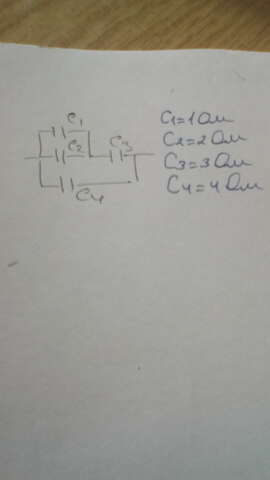 C1
C2
C3
C4
C1=1 Ом
C2=2 Ом
C3=3 Ом
C4=4 Ом